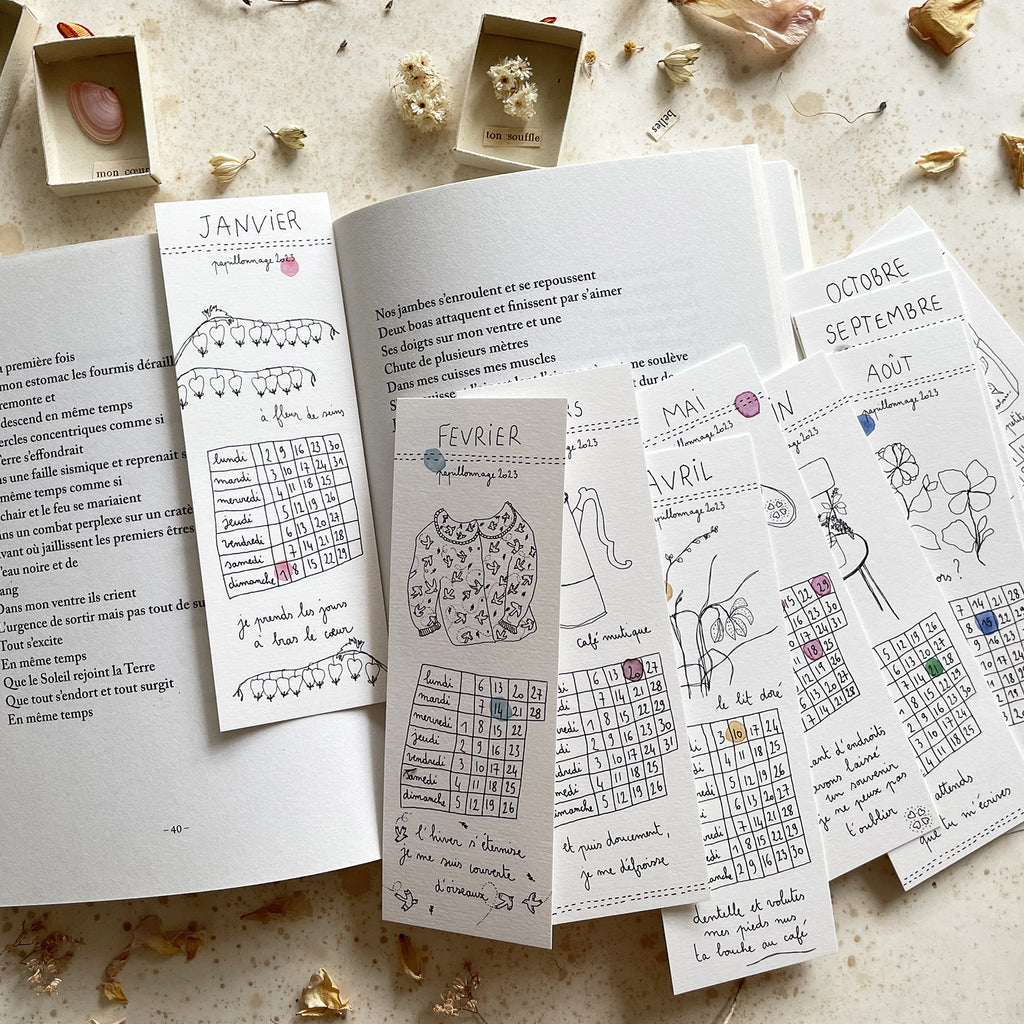 mon cœur
ton souffle
belles
JANVIER
papillonnage 2023
à fleur de sens
lundi 2 9 16 23 30
mardi 3 10 17 24 31
mercredi 4 11 18 25
jeudi 5 12 19 26
vendredi 6 13 20 27
samedi 7 14 21 28
dimanche 1 8 15 22 29
je prends les jours
à bras le cœur
première fois
mon estomac les fourmis déraill
remonte et
descend en même temps
ercles concentriques comme si
erre s'effondrait
ns une faille sismique et reprenait s
même temps comme si
chair et le feu se mariaient
ans un combat perplexe sur un crat
vant où jaillissent les premiers êtres
'eau noire et de
ang
Dans mon ventre ils crient
L'urgence de sortir mais pas tout de su
Tout s'excite
En même temps
Que le Soleil rejoint la Terre
Que tout s'endort et tout surgit
En même temps
– 40 –
Nos jambes s'enroulent et se repoussent
Deux boas attaquent et finissent par s'aimer
Ses doigts sur mon ventre et une
Chute de plusieurs mètres
Dans mes cuisses mes muscles
soulève
dur de
FEVRIER
papillonnage 2023
lundi 6 13 20 27
mardi 7 14 21 28
mercredi 1 8 15 22
jeudi 2 9 16 23
vendredi 3 10 17 24
samedi 4 11 18 25
dimanche 5 12 19 26
l'hiver s'éternise
je me suis couverte
d'oiseaux
RS
2023
café mutique
lundi 6 13 20 27
mardi 7 14 21 28
mercredi 1 8 15 22 29
jeudi 2 9 16 23 30
vendredi 3 10 17 24 31
samedi 4 11 18 25
dimanche 5 12 19 26
et puis doucement,
je me défroisse
AVRIL
papillonnage 2023
le lit doré
3 10 17 24
4 11 18 25
5 12 19 26
6 13 20 27
7 14 21 28
1 8 15 22 29
2 9 16 23 30
dentelle et volutes
mes pieds nus
ta bouche au café
MAI
papillonnage 2023
15 22 29
18
ant d'endroits
avons laissé
un souvenir
je ne peux pas
t'oublier
IN
2023
5 12 19 26
6 13 20 27
7 14 21 28
1 8 15 22 29
2 9 16 23 30
3 10 17 24
4 11 18 25
AOÛT
papillonnage 2023
7 14 21 28
8 15
9 16
10 17
attends
que tu m'écrives
SEPTEMBRE
OCTOBRE